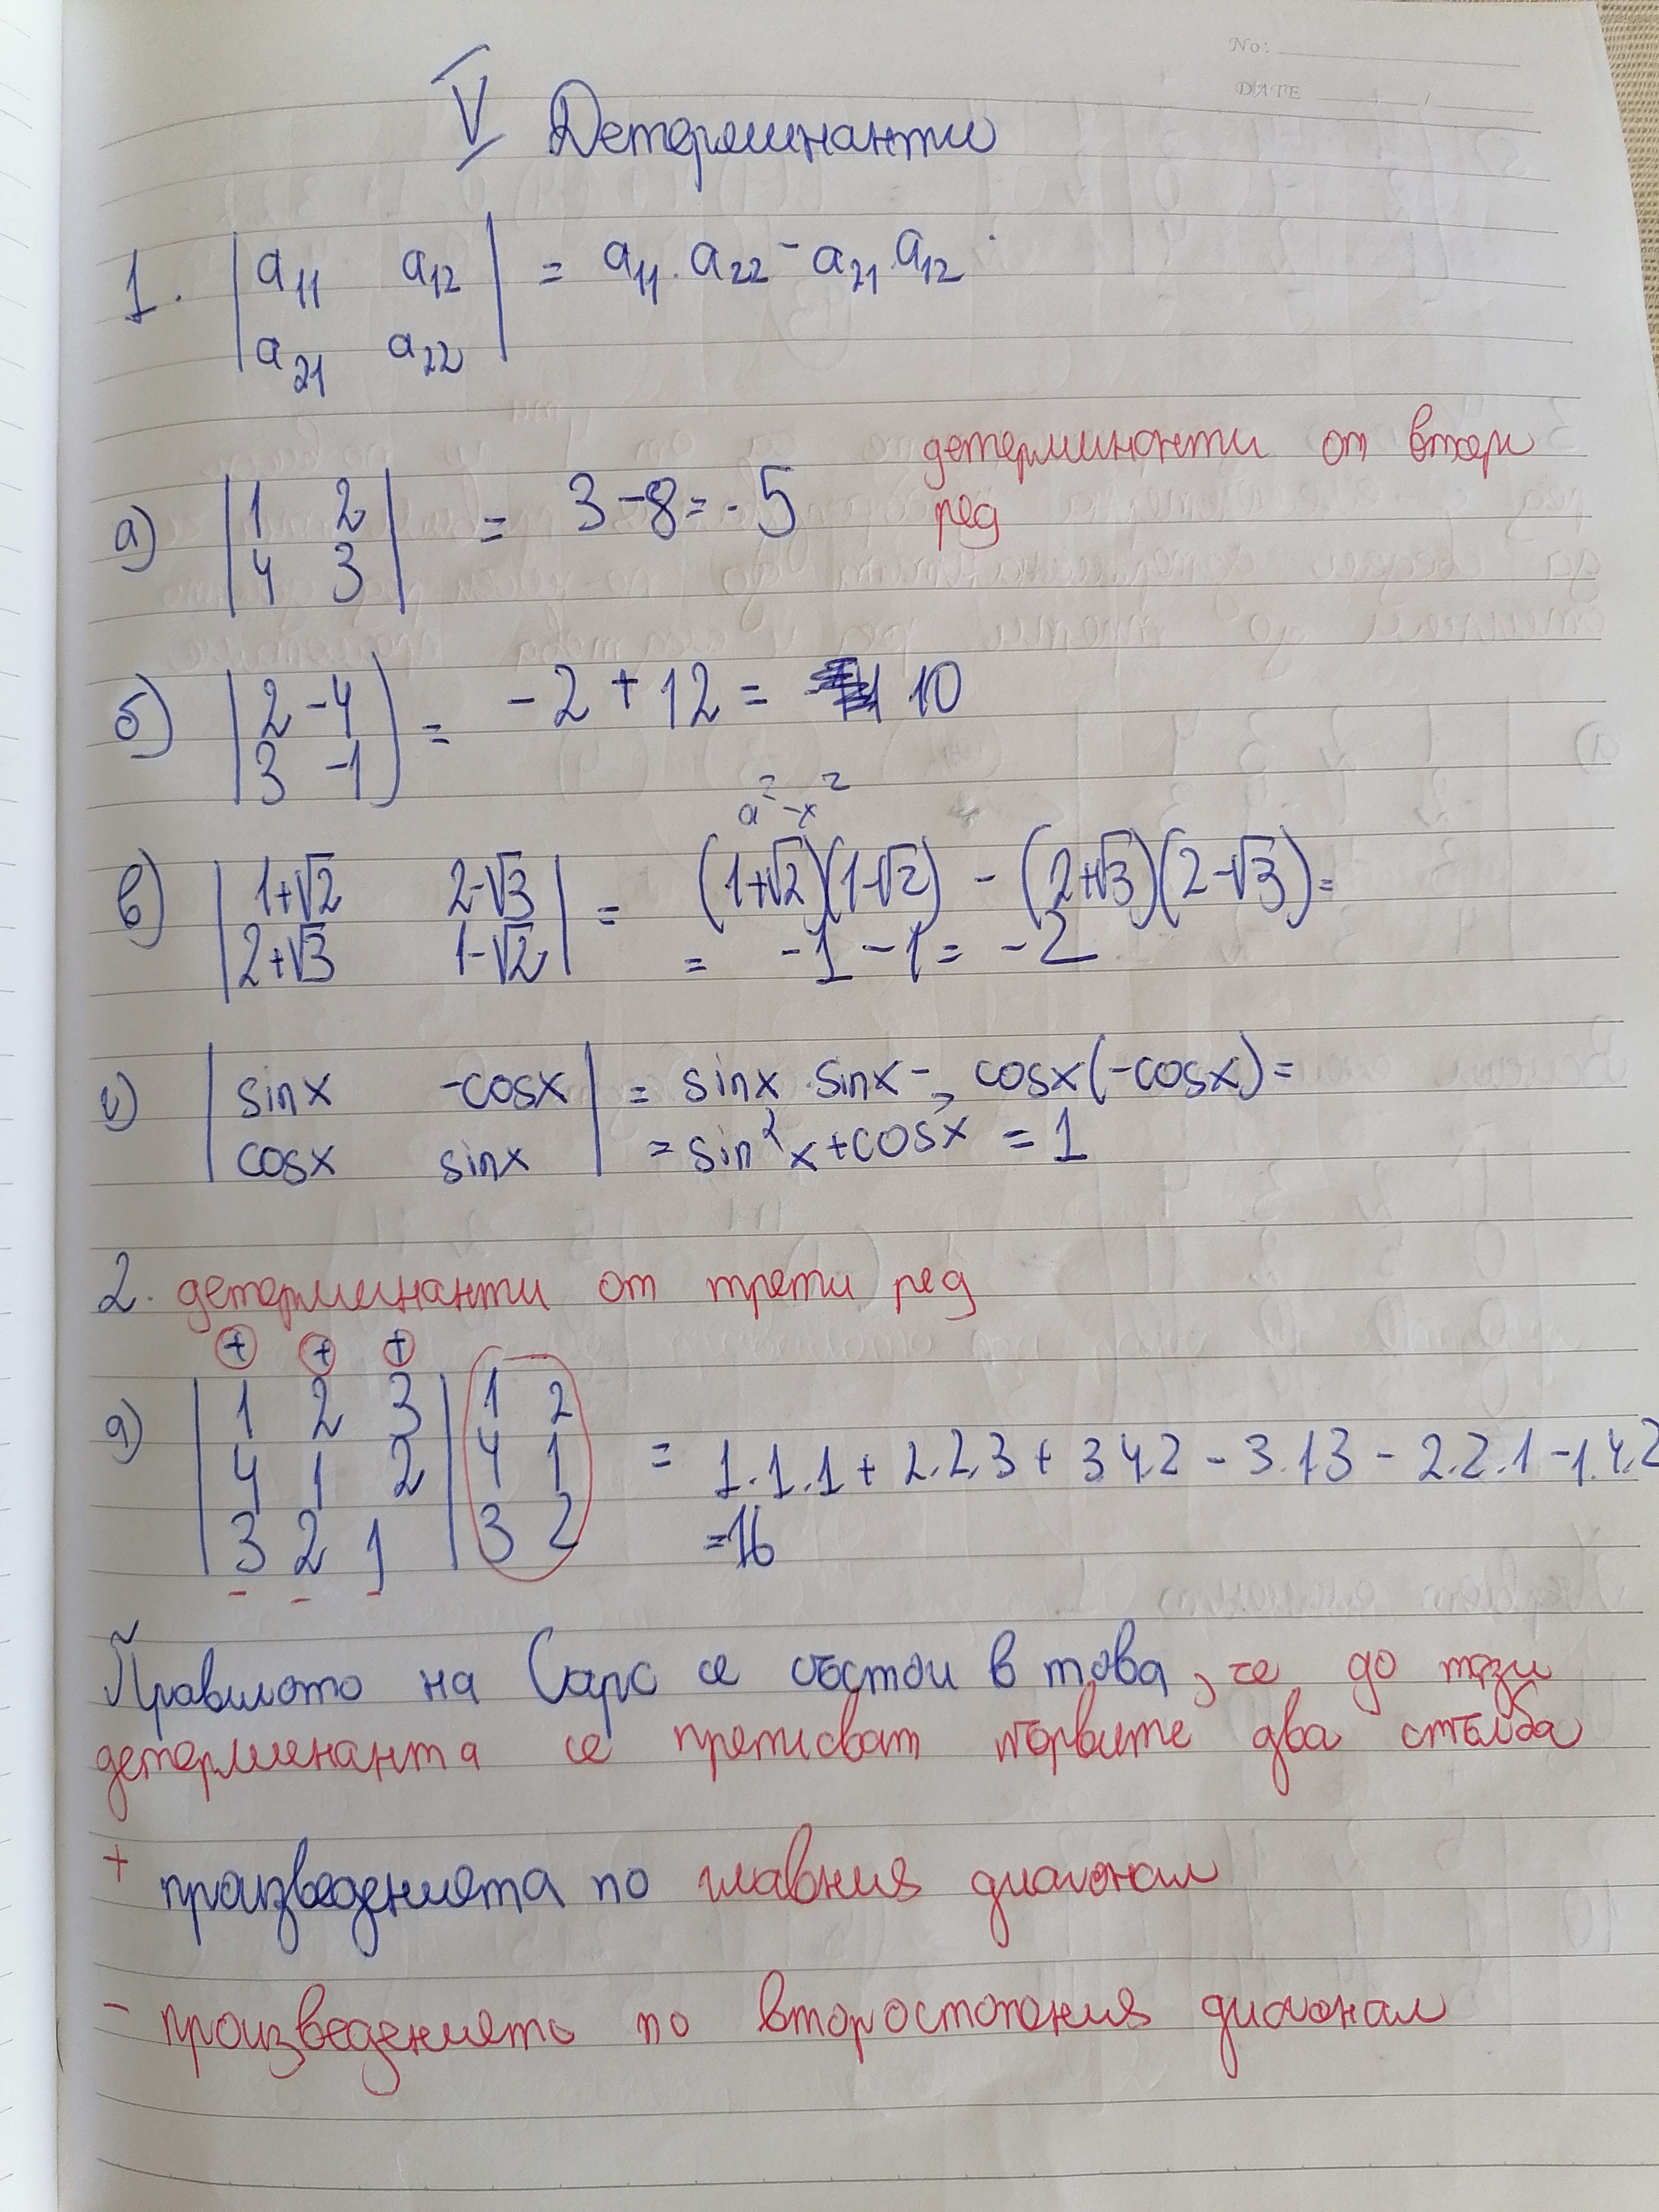 No:
DATE /
V Детерминанти
1. | a11 a12 | = a11 . a22 - a21 . a12
| a21 a22 |
детерминанти от втори
ред
а) | 1 2 | = 3 - 8 = - 5
| 4 3 |
б) | 2 -4 | = - 2 + 12 = 10
| 3 -1 |
a² - x²
в) | 1+√2 2-√3 | = (1+√2)(1-√2) - (2+√3)(2-√3) =
| 2+√3 1-√2 | = -1 - 1 = - 2
г) | sinx -cosx | = sinx . sinx - cosx(-cosx) =
| cosx sinx | = sin²x + cos²x = 1
2. детерминанти от трети ред
+ + +
а) | 1 2 3 | 1 2
| 4 1 2 | 4 1 = 1.1.1 + 2.2.3 + 3.4.2 - 3.1.3 - 2.2.1 - 1.4.2
| 3 2 1 | 3 2 = 16
- - -
Правилото на Сарс се състои в това, че до тази
детерминанта се преписват първите два стълба
+ произведенията по главния диагонал
- произведенията по второстепенния диагонал